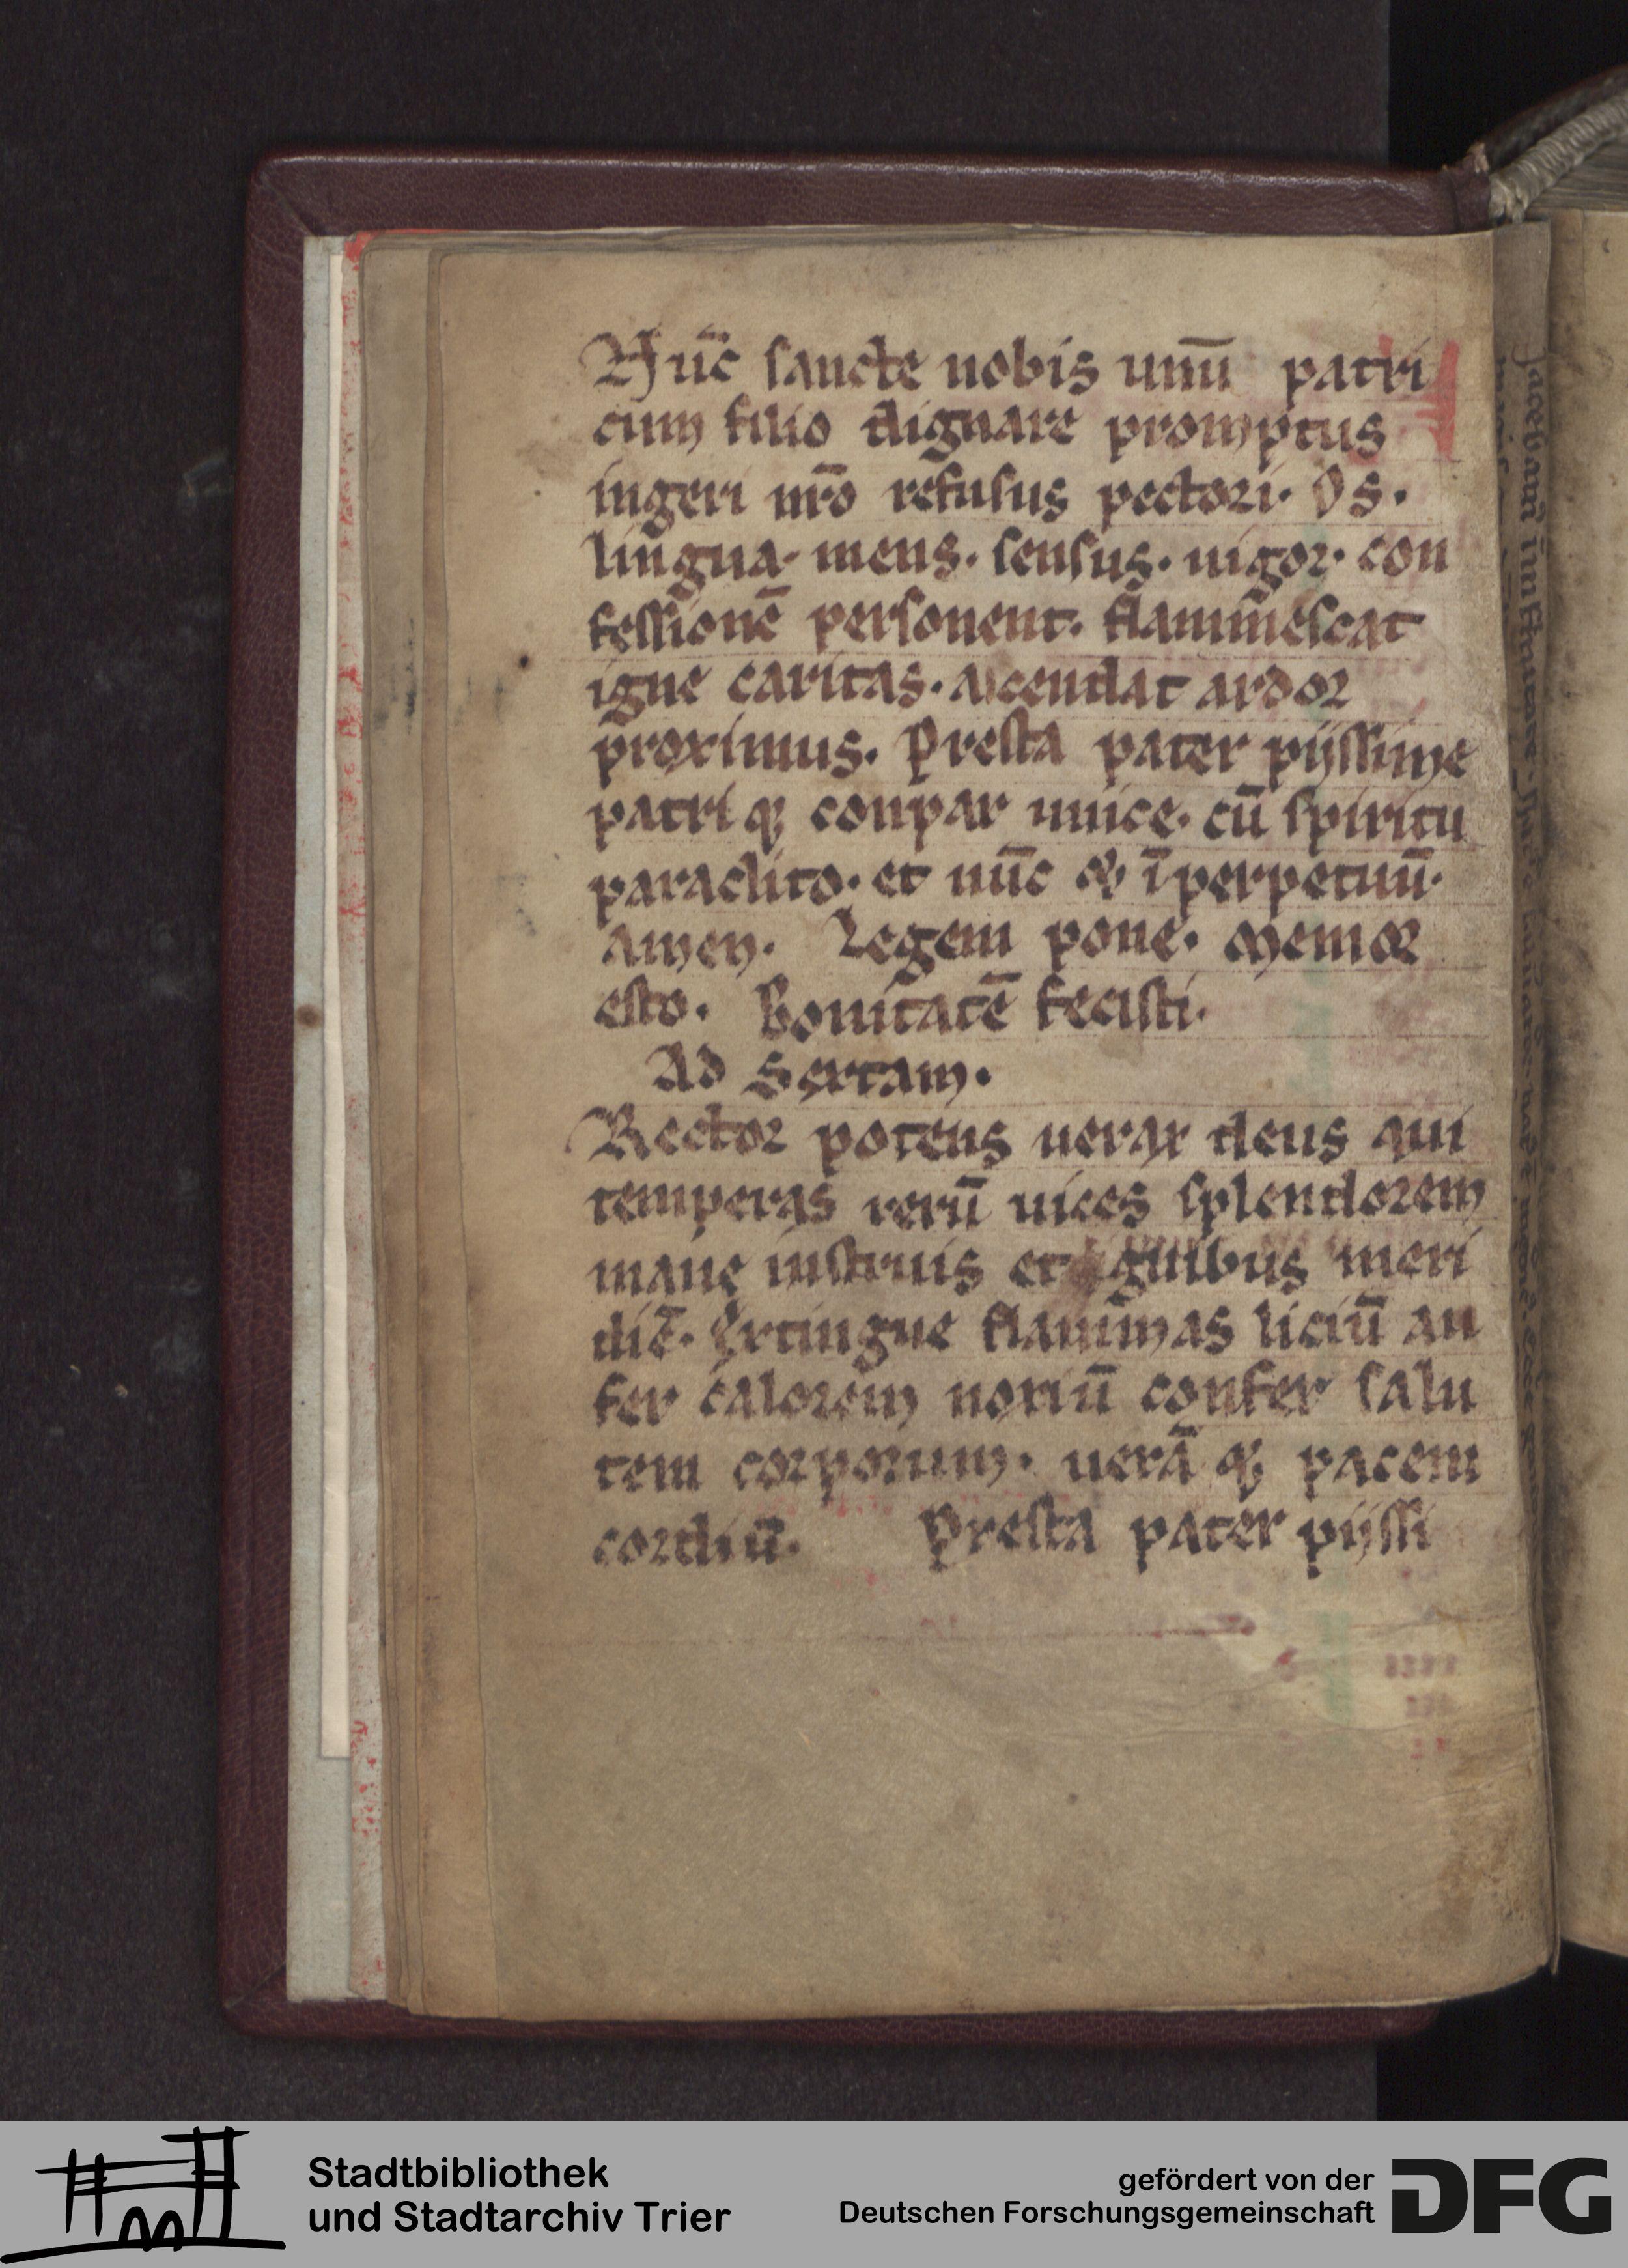 Nūc sancte nobis unū patri
cum filio dignare promptus
ingeri nr̄o refusus pectori. Os.
lingua. mens. sensus. uigor. con
fessionē personent. flam̄mescat
igne caritas. accendat ardor
proximus. Presta pater pijssime
patriqꝫ conpar unice. cū spiritu
paraclito. et nūc & ī perpetuū.
amen. Legem pone. Memor
esto. Bonitatē fecisti.
Ad Sextam.
Rector potens uerax deus qui
temperas rerū uices splendorem
mane instruis et ignibus meri
diē. Extingue flam̄mas liciū au
fer calorem noxiū confer salu
tem corporum. uerā qꝫ pacem
cordiū. Presta pater pijssi
Stadtbibliothek
und Stadtarchiv Trier
gefördert von der
Deutschen Forschungsgemeinschaft
DFG